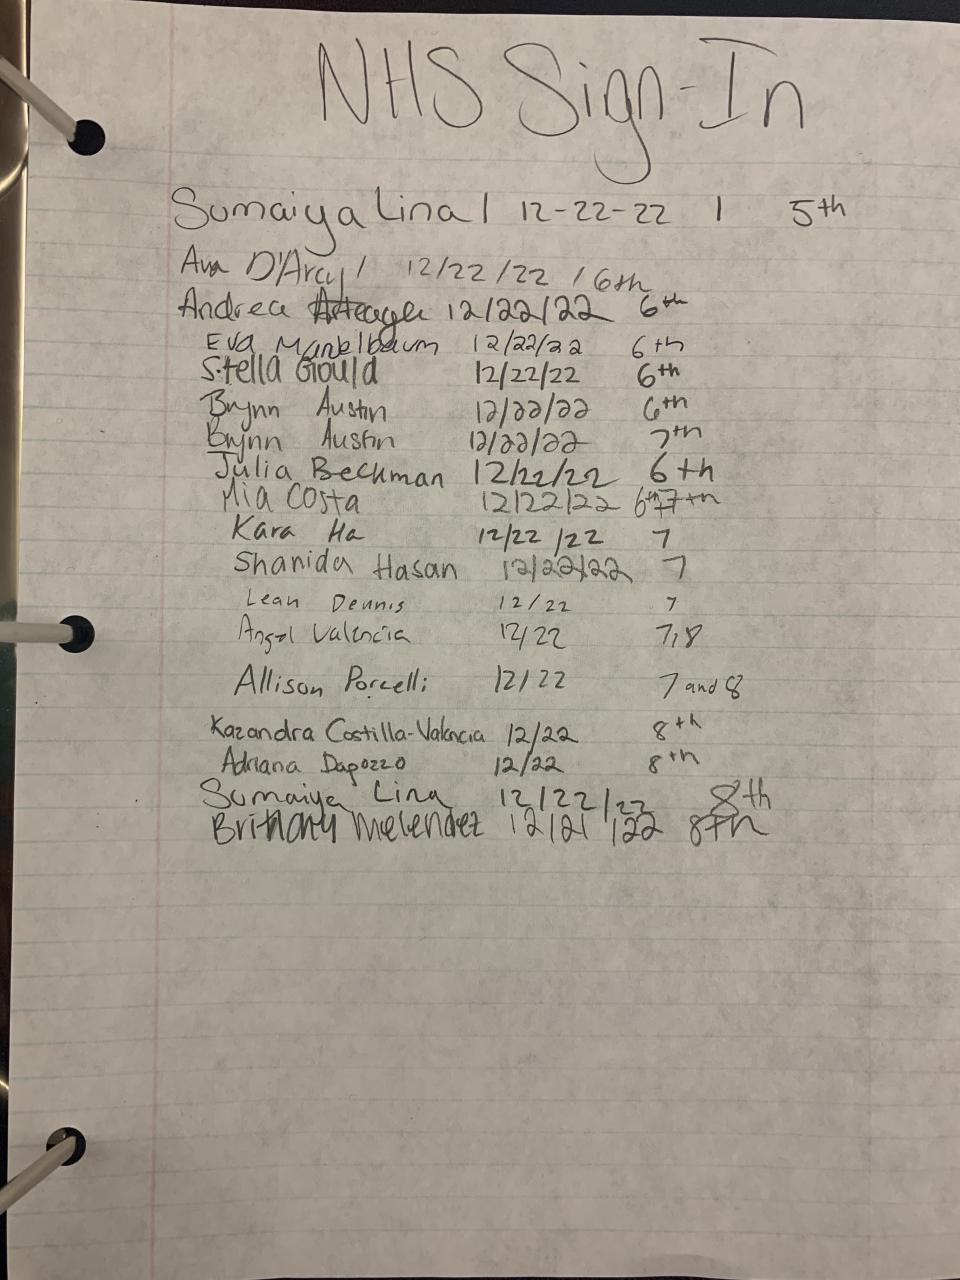 NHS Sign-In
Sumaiya Lina | 12-22-22 | 5th
Ava D'Arcy / 12/22/22 / 6th
Andrea 12/22/22 6th
Eva Manelbaum 12/22/22 6th
Stella Gould 12/22/22 6th
Brynn Austin 12/22/22 6th
Brynn Austin 12/22/22 7th
Julia Beckman 12/22/22 6th
Mia Costa 12/22/22 6th 7th
Kara Ha 12/22/22 7
Shanida Hasan 12/22/22 7
Leah Dennis 12/22 7
Angel Valencia 12/22 7,8
Allison Porcelli 12/22 7 and 8
Kazandra Costilla-Valencia 12/22 8th
Adriana Dapozzo 12/22 8th
Sumaiya Lina 12/22/22 8th
Brithany Melendez 12/21/22 8th